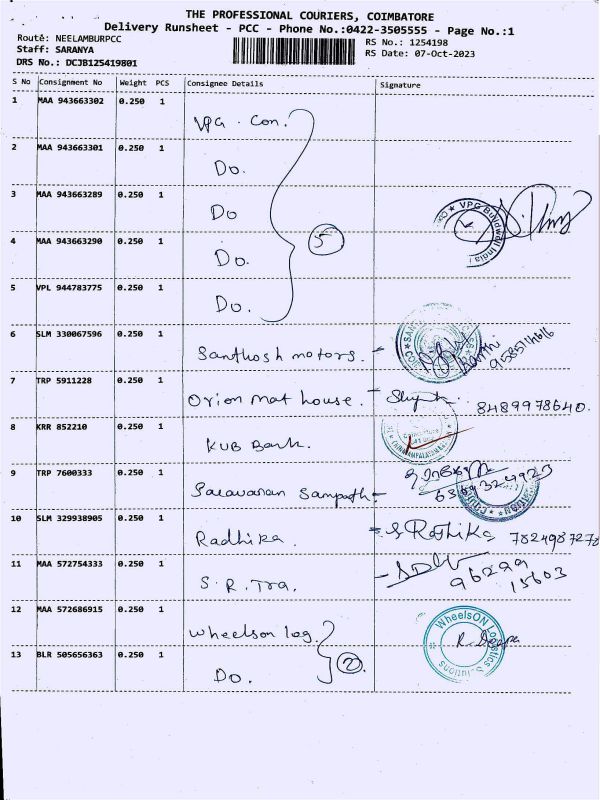 THE PROFESSIONAL COURIERS, COIMBATORE
Delivery Runsheet - PCC - Phone No.:0422-3505555 - Page No.:1
Route: NEELAMBURPCC RS No.: 1254198
Staff: SARANYA RS Date: 07-Oct-2023
DRS No.: DCJB125419801
S No Consignment No Weight PCS Consignee Details Signature
1 MAA 943663302 0.250 1 VPG. Con.
2 MAA 943663301 0.250 1 Do.
3 MAA 943663289 0.250 1 Do VPG Buildwell India
4 MAA 943663290 0.250 1 Do. 5
5 VPL 944783775 0.250 1 Do.
6 SLM 330067596 0.250 1 Santhosh motors. -
7 TRP 5911228 0.250 1 Orion mat house. - 8489978640.
8 KRR 852210 0.250 1 KUB Bank.
9 TRP 7600333 0.250 1 Saravanan Sampath -
10 SLM 329938905 0.250 1 Radhika. - S Rathika 7824987278
11 MAA 572754333 0.250 1 S. R. Tra. - 96299 15603
12 MAA 572686915 0.250 1 Wheelson log. WheelsON Logistics Solutions R. Deepa
13 BLR 505656363 0.250 1 Do. 2